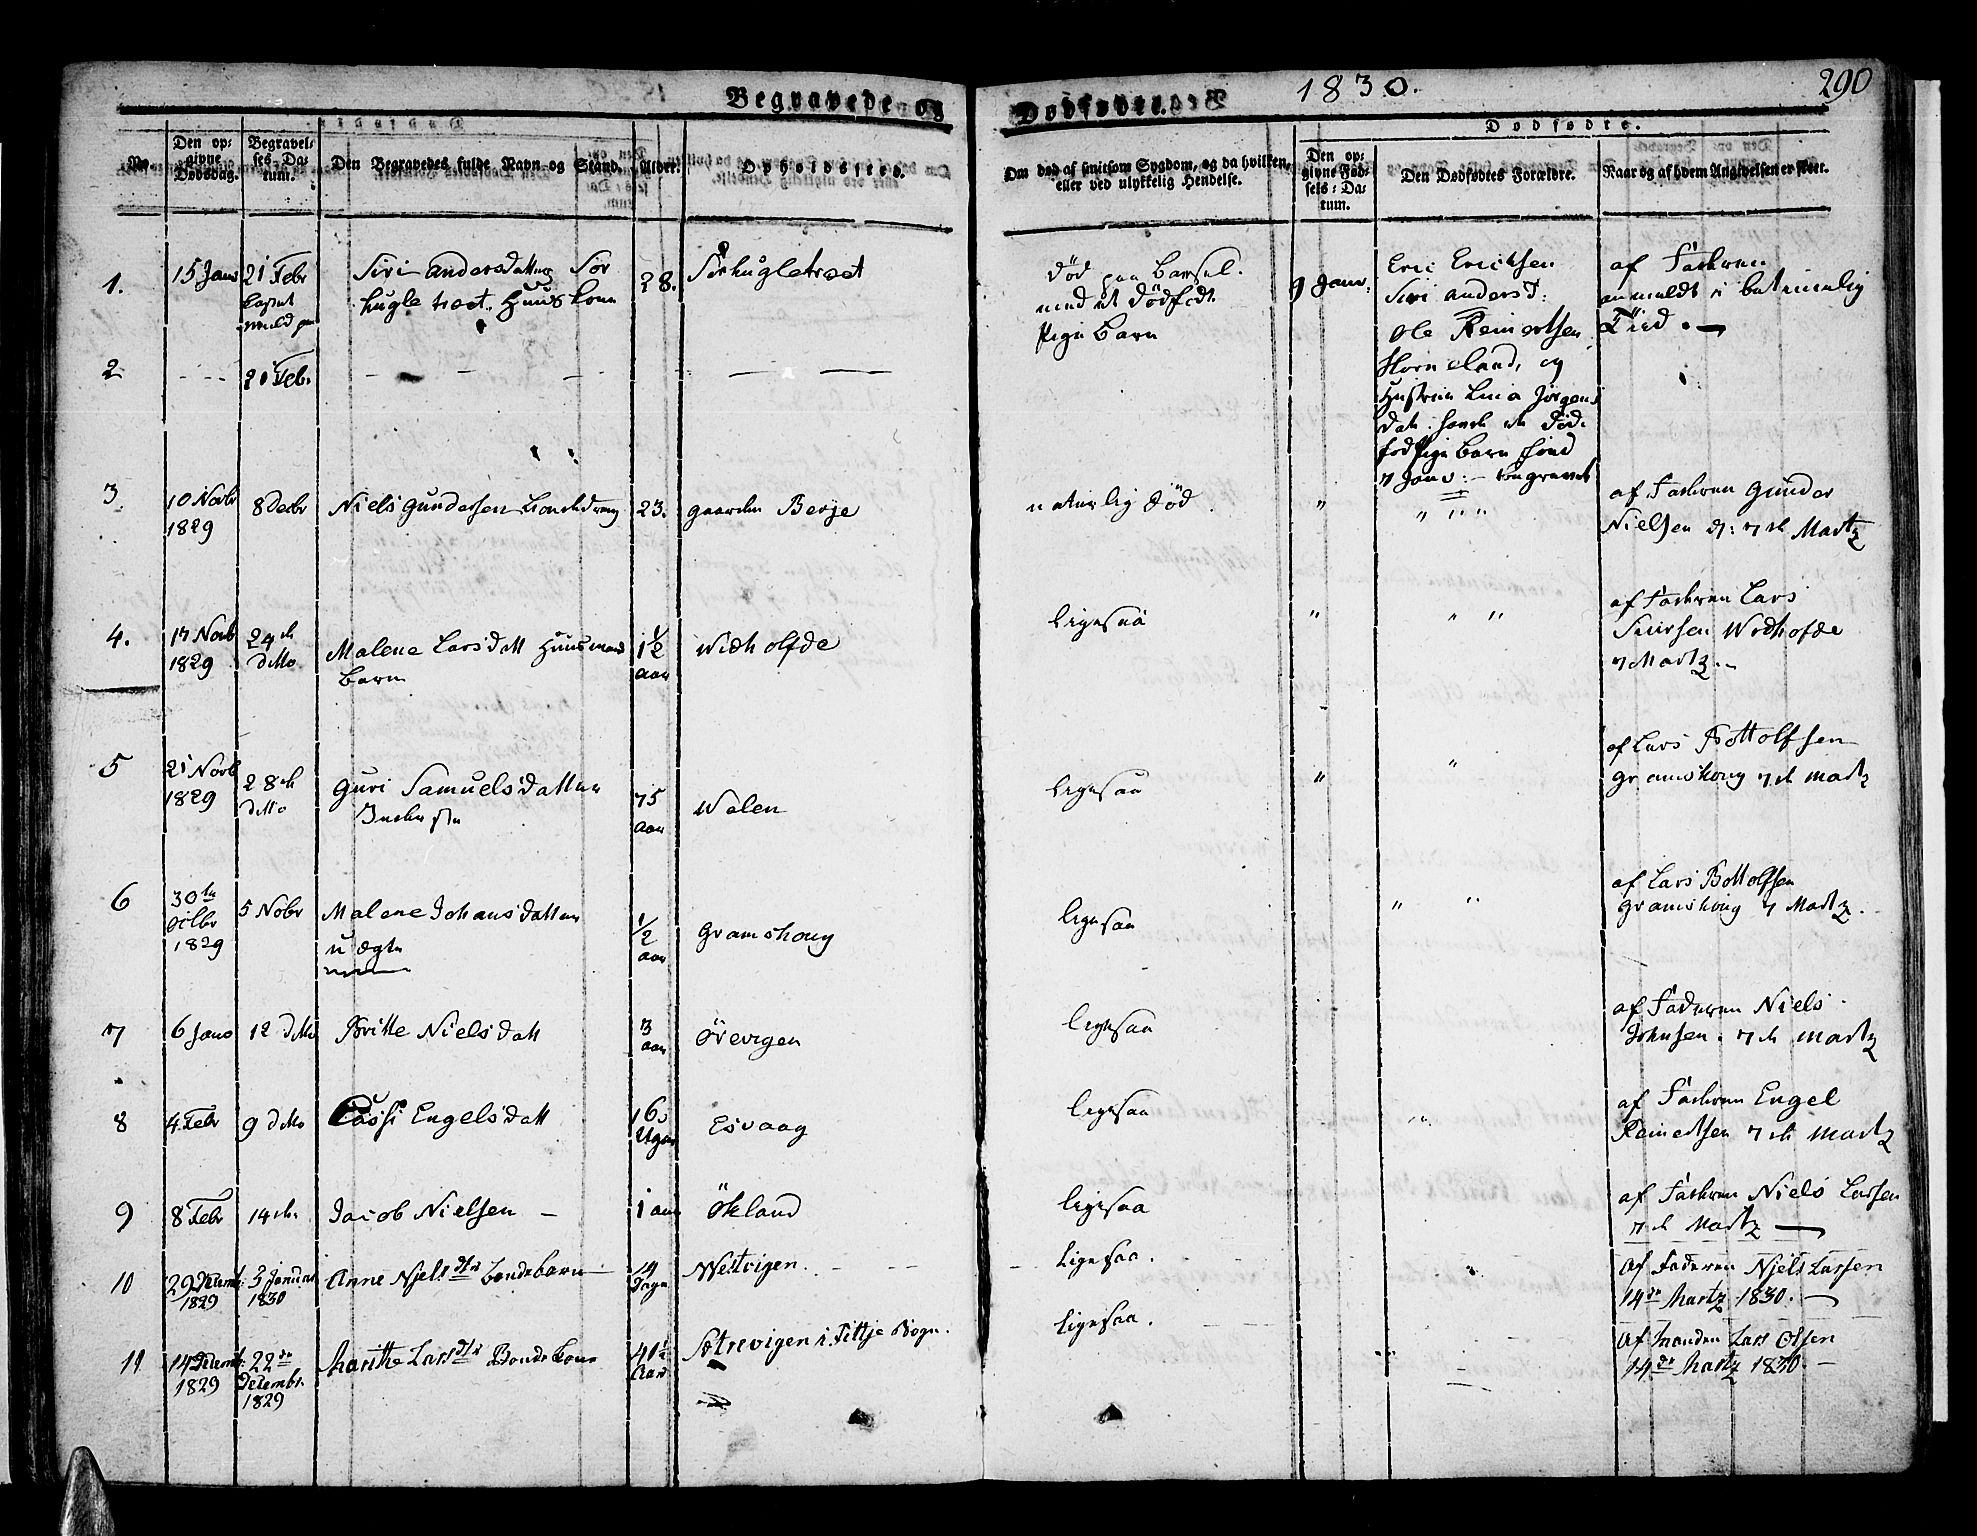 Begravede og
Dødfødte.
1830.
290
Dødfødte.
No.
Den op-
givne
Dødsdag.
Begravel-
ses Da-
tum.
Den Begravedes fulde Navn og Stand.
Alder.
Opholdssted.
Om død af smitsom Sygdom, og da hvilken,
eller ved ulykkelig Hendelse.
Den op-
givne Fød-
sels-Da-
tum.
Den Dødfødtes Forældre.
Naar og af hvem Angivelsen er skeet.
1.
15 Janv
21 Febr
Siri Andersdatter Sør
Kugletræet. Huus Kone
28.
Sørkugletræet
død paa Barsel.
med et Dødfødt
Pige Barn
9 Janv:
Eric Ericksen
Siri Andersd:
af Faderen
anmeldt i betimelig
Tiid. —
2
- - -
20 Febr
— — —
— — —
Ole Reinertsen
Horneland, og
Hustrue Lina Jörgens
Dat.
Pige Barn
7 Janv:
3
10 Novbr
1829
8 Decbr
Niels Gundersen
23.
gaarden Berje
naturlig Död.
"
" " "
af Faderen Gunder
Nielsen d: 7de Martz
4.
17 Novb
1829
24de
ditto
Malene Larsdatt Huusmand
Barn
1 1/2
aar
Widholfde
ligesaa
"
" "
af Faderen Lars
Sivrsen Wedhofde
7 Martz.
5
21 Novb
1829
28de
ditto
Guri Samuelsdatter
75
aar
Walen
ligesaa
"
"
af Lars Bottolfsen
Gramshoug 7de Martz
6
30te
1829
5 Nobr
Malene Johansdatter
uægte
1/2
aar
Gramshoug
ligesaa
" "
af Lars Bottolfsen
Gramshoug 7 Martz.
7
6 Janv
12 ditto
Britte Nielsdatt
3
aar
Örevigen
ligesaa
af Faderen Niels
Johnsen. 7de Martz
8
4 Febr
9 ditto
Engelsdatt
16
Uger
Esvaag
ligesaa
af Faderen Engel
Reinertsen 7de Martz
9
8 Febr
14de
Jacob Nielsen —
1 aar
Ökland
ligesaa
af Faderen Niels Larsen
7de Martz —
10
29 Decembr:
1829
3 Januar
1830
Anne Njelsdtr Bondebarn
19
Dage
Westvigen.
Ligesaa.
Af Faderen Njels Larsen
14de Martz 1830. —
11
14 Decemb:
1829
22de
Decembr.
1829
Marithe Larsdtr Bondekone
41 1/2
Aar
Sætrevigen i Fittje Sogn.
Ligesaa.
Af Manden Lars Olsen
14de Martz 1830. —